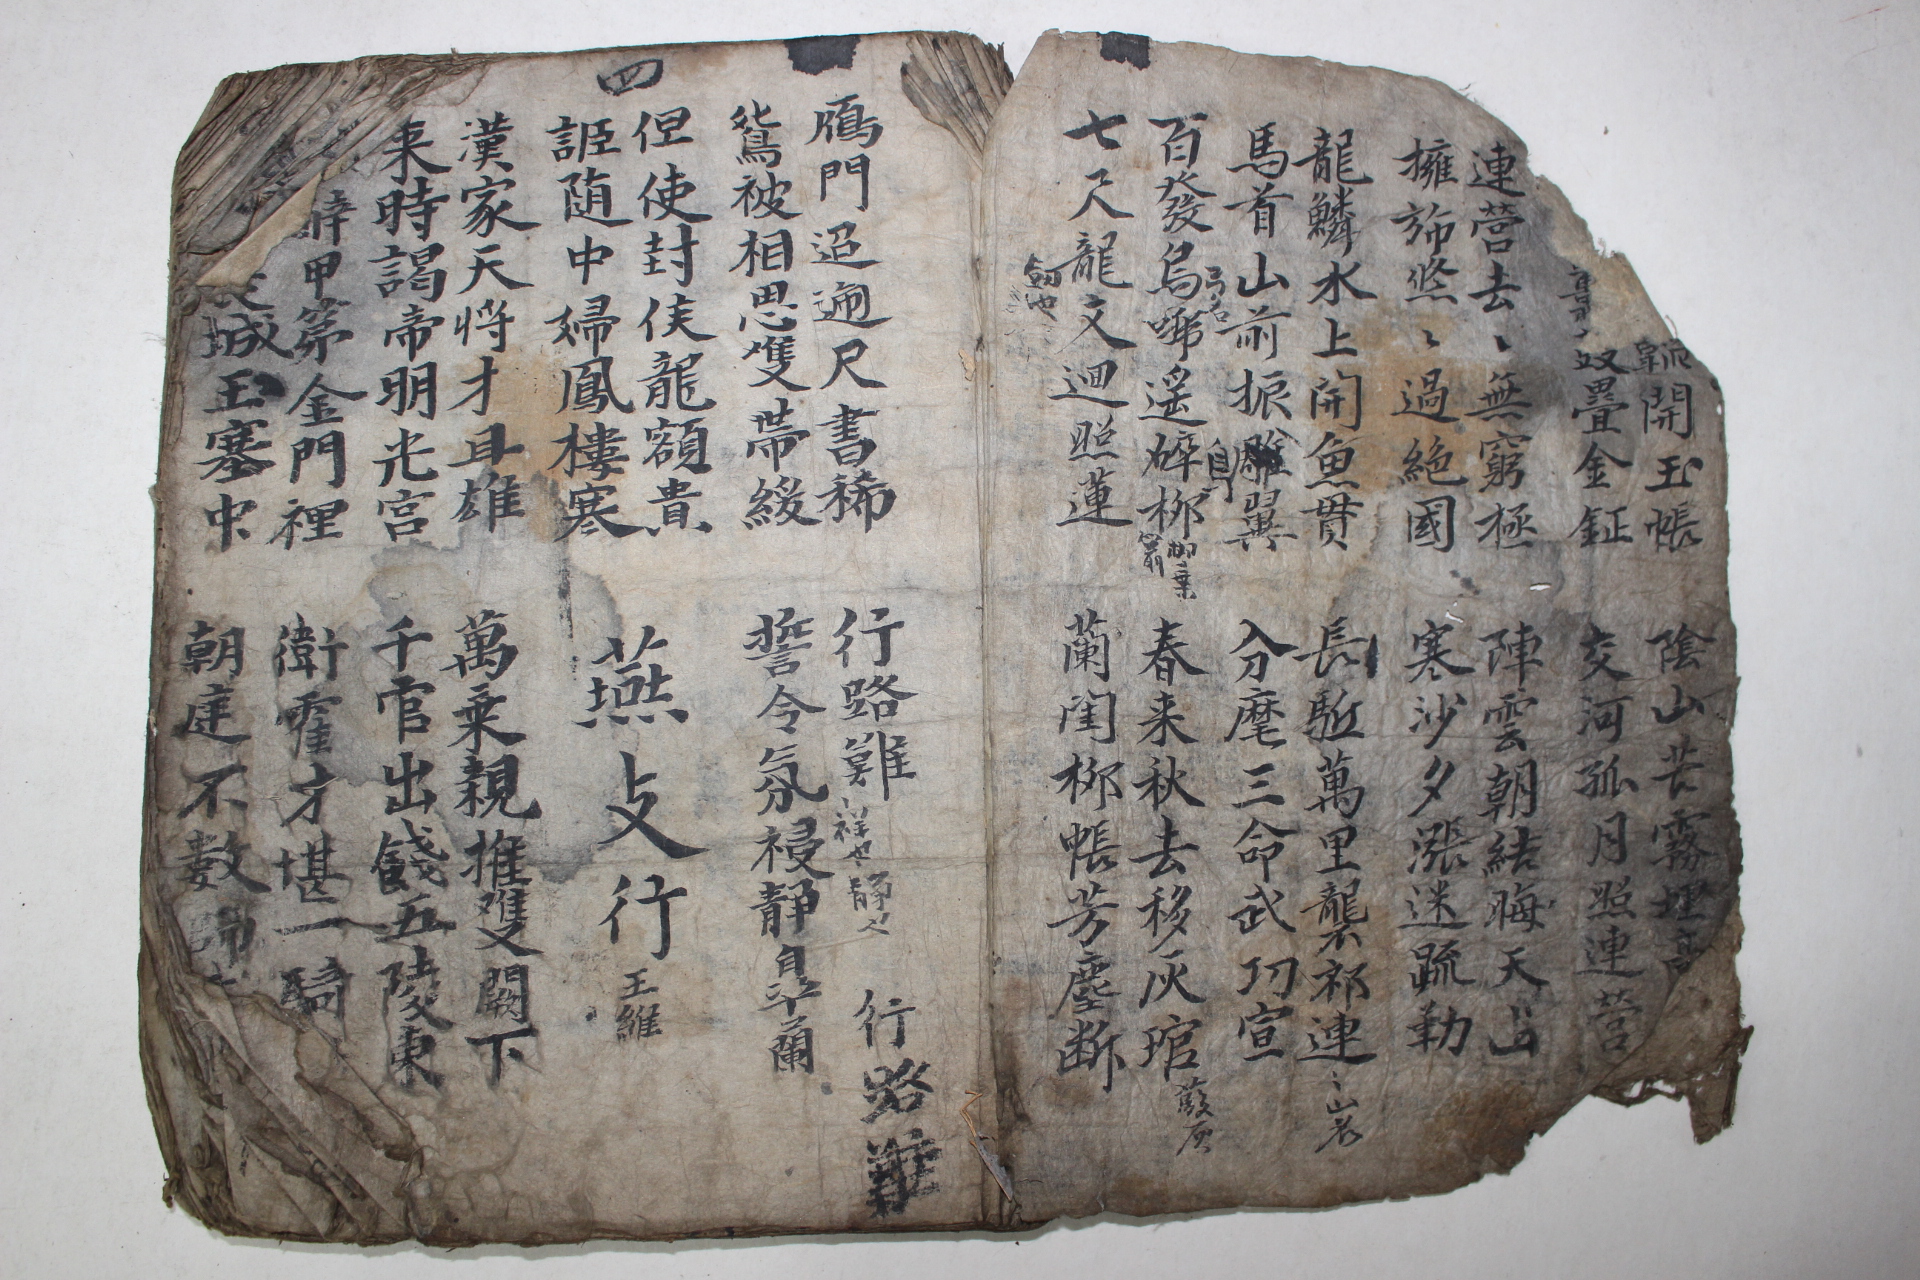 開玉帳　陰山苦霧埋高
疊金鉦　交河孤月照連營
連營去〻無窮極　陣雲朝結晦天山
擁旆悠〻過絶國　寒沙夕漲迷疏勒
龍鱗水上開魚貫　長駈萬里襲祁連〻山名
馬首山前振雕翼　分麾三命武功宣
弓名
百發烏嘷遥碎柳　春来秋去移灰琯
柳葉箭
七尺龍文迴照蓮　蘭閨柳帳芳塵断
劔也
四
鴈門迢遞尺書稀　行路難　行路難
鴛被相思雙帶緩　誓令氛祲静皐蘭
但使封侯龍額貴
詎随中婦鳳樓寒　燕支行　王維
漢家天將才且雄　萬乗親推雙闕下
来時謁帝明光宮　千官出餞五陵東
辭甲第金門裡　衛霍才堪一騎
城玉塞中　朝庭不數師